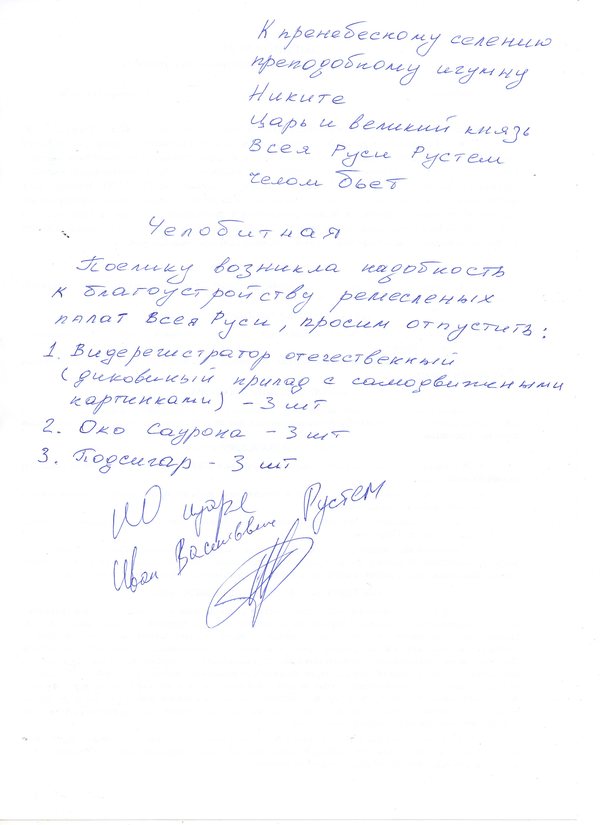 К пренебесному селению
преподобному игумну
Никите
Царь и великий князь
Всея Руси Рустем
челом бьет
Челобитная
Поелику возникла надобность
к благоустройству ремесленых
палат Всея Руси, просим отпустить:
1. Видерегистратор отечественный
(диковиный прилад с самодвижными
картинками) - 3 шт
2. Око Саурона - 3 шт
3. Подсигар - 3 шт
ИО царя
Иван Васильевич Рустем